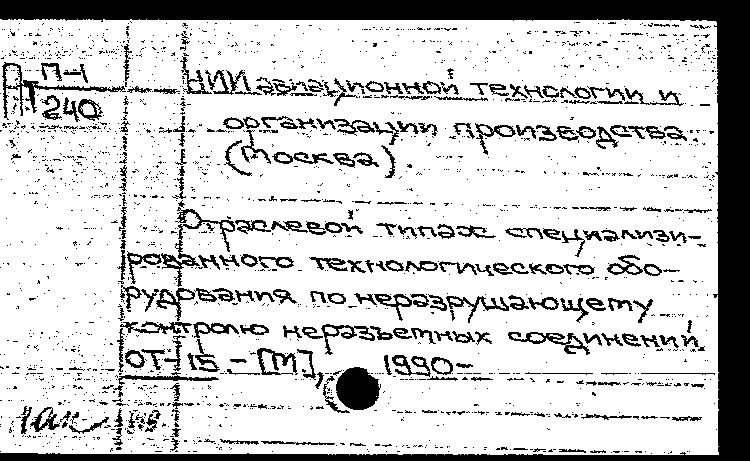 П-1
Т
240
НИИ авиационной технологии и
организации производства.
(Москва).
Отраслевой типаж специализи-
рованного технологического обо-
рудования по неразрушающему
контролю неразъемных соединений.
ОТ-15. - [М], 1990-